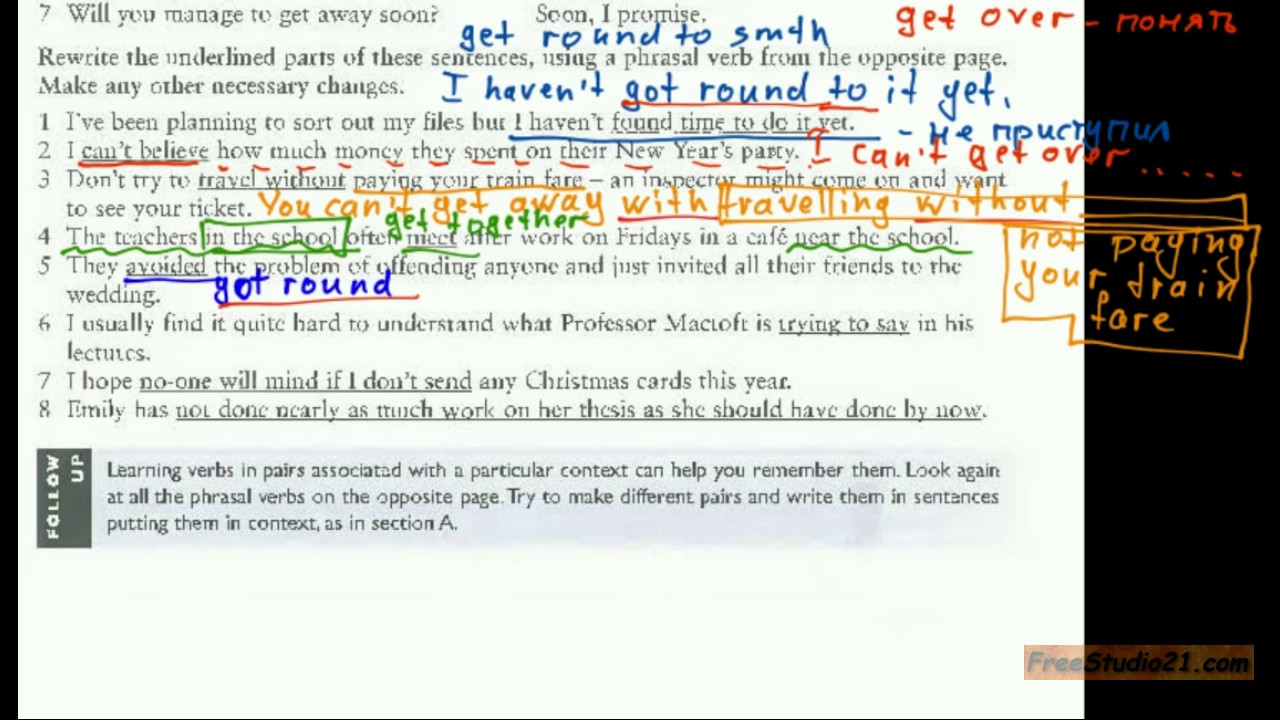 7 Will you manage to get away soon? Soon, I promise.
get over - понять
get round to smth
Rewrite the underlined parts of these sentences, using a phrasal verb from the opposite page.
Make any other necessary changes.
I haven't got round to it yet.
1 I've been planning to sort out my files but I haven't found time to do it yet.
- не приступил
2 I can't believe how much money they spent on their New Year's party.
I can't get over ......
3 Don't try to travel without paying your train fare – an inspector might come on and want
to see your ticket.
You can't get away with travelling without
not paying
your drain
fare
get together
4 The teachers in the school often meet after work on Fridays in a café near the school.
5 They avoided the problem of offending anyone and just invited all their friends to the
wedding.
got round
6 I usually find it quite hard to understand what Professor Mactoft is trying to say in his
lectures.
7 I hope no-one will mind if I don't send any Christmas cards this year.
8 Emily has not done nearly as much work on her thesis as she should have done by now.
FOLLOW
UP
Learning verbs in pairs associated with a particular context can help you remember them. Look again
at all the phrasal verbs on the opposite page. Try to make different pairs and write them in sentences
putting them in context, as in section A.
FreeStudio21.com